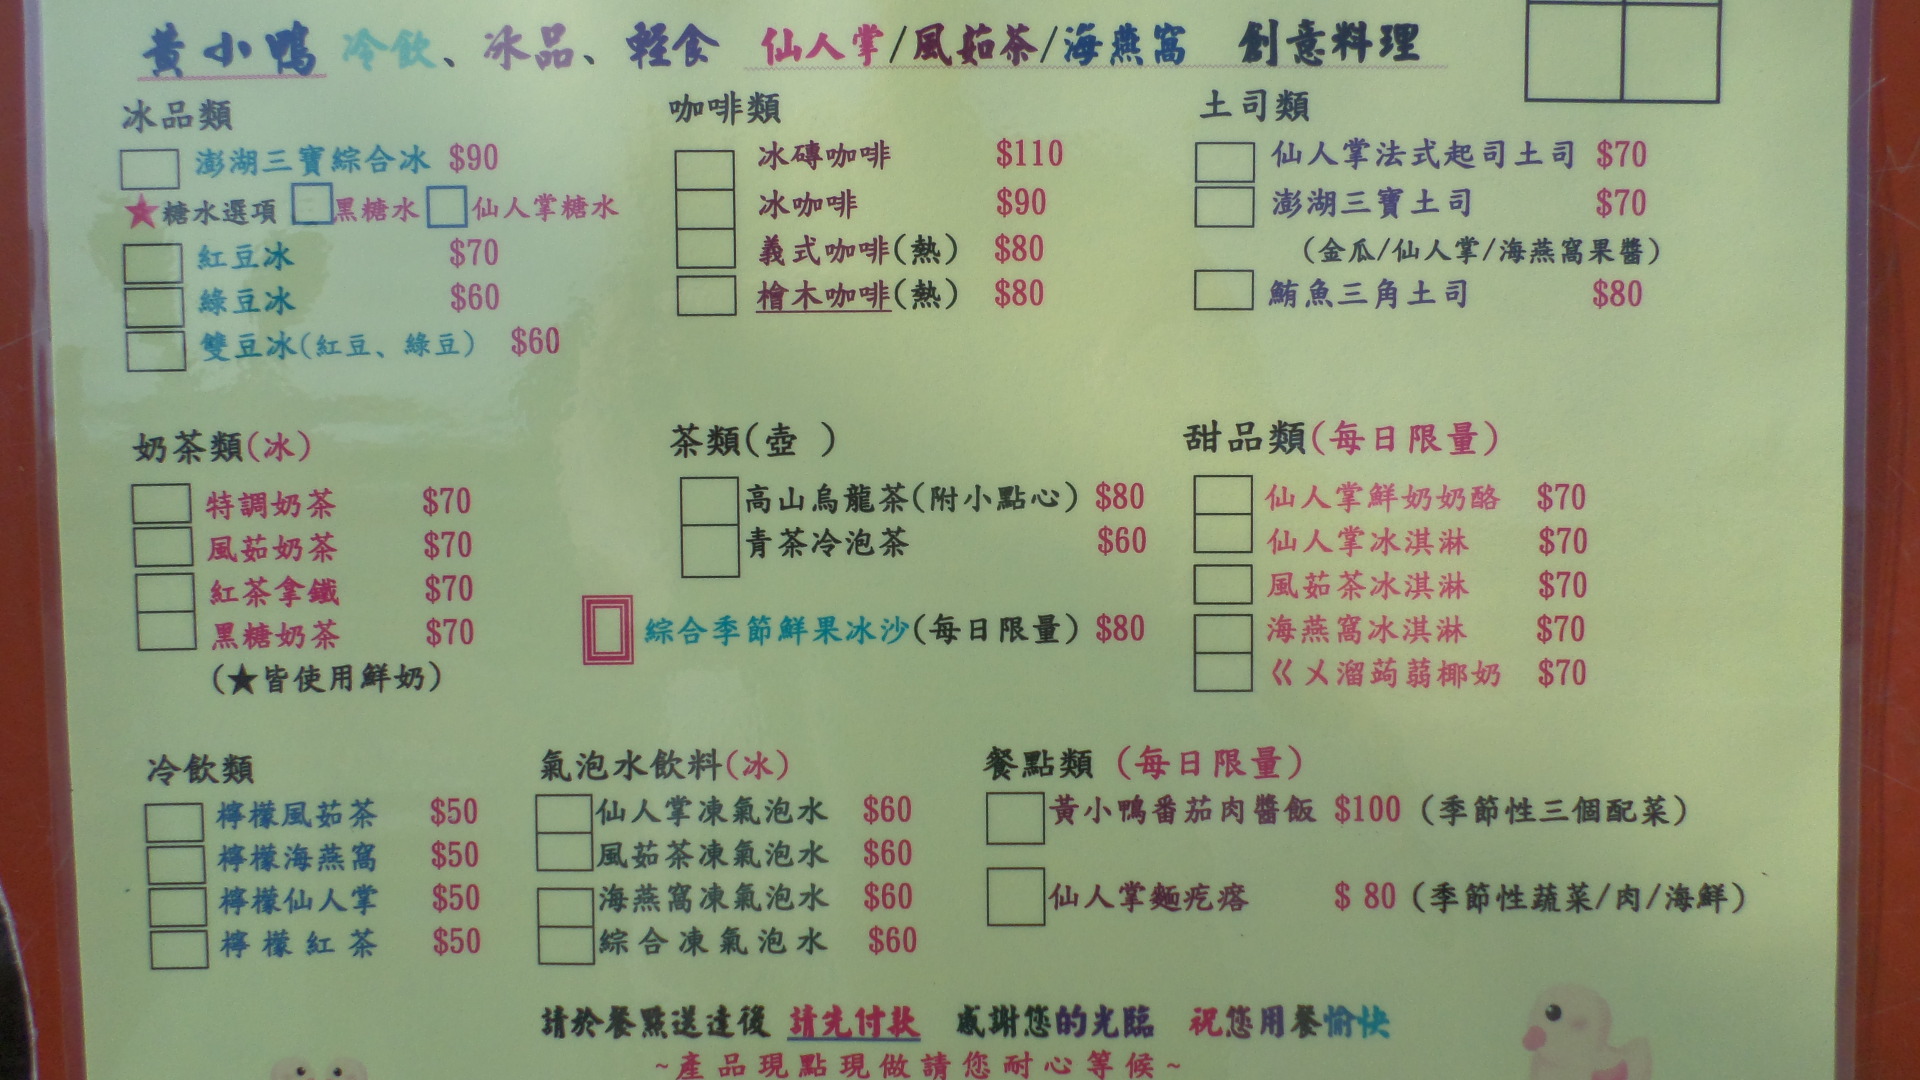 黃小鴨 冷飲、冰品、輕食 仙人掌/風茹茶/海燕窩 創意料理
冰品類
澎湖三寶綜合冰 $90
★糖水選項 黑糖水 仙人掌糖水
紅豆冰 $70
綠豆冰 $60
雙豆冰(紅豆、綠豆) $60
咖啡類
冰磚咖啡 $110
冰咖啡 $90
義式咖啡(熱) $80
檜木咖啡(熱) $80
土司類
仙人掌法式起司土司 $70
澎湖三寶土司 $70
(金瓜/仙人掌/海燕窩果醬)
鮪魚三角土司 $80
奶茶類(冰)
特調奶茶 $70
風茹奶茶 $70
紅茶拿鐵 $70
黑糖奶茶 $70
(★皆使用鮮奶)
茶類(壺 )
高山烏龍茶(附小點心) $80
青茶冷泡茶 $60
綜合季節鮮果冰沙(每日限量) $80
甜品類(每日限量)
仙人掌鮮奶奶酪 $70
仙人掌冰淇淋 $70
風茹茶冰淇淋 $70
海燕窩冰淇淋 $70
ㄍㄨ溜蒟蒻椰奶 $70
冷飲類
檸檬風茹茶 $50
檸檬海燕窩 $50
檸檬仙人掌 $50
檸檬紅茶 $50
氣泡水飲料(冰)
仙人掌凍氣泡水 $60
風茹茶凍氣泡水 $60
海燕窩凍氣泡水 $60
綜合凍氣泡水 $60
餐點類 (每日限量)
黃小鴨番茄肉醬飯 $100 (季節性三個配菜)
仙人掌麵疙瘩 $ 80 (季節性蔬菜/肉/海鮮)
請於餐點送達後 請先付款 感謝您的光臨 祝您用餐愉快
~產品現點現做請您耐心等候~